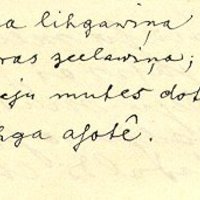 a lihgawiņa
ras zeelawiņa;
eju mutes dot
hga aſotê.